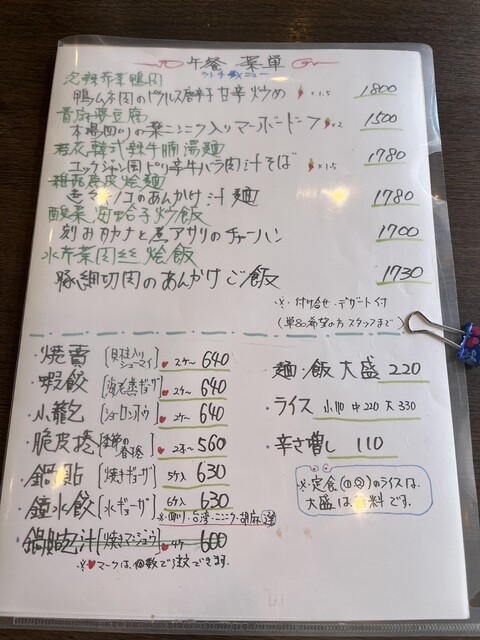 午餐 菜単
ランチ メニュー
鴨ムネ肉のピクルス唐辛子甘辛炒め ×1.5 1800
青麻婆豆腐
本場四川の葉ニンニク入りマーボードーフ ×2 1500
韓式辣牛腩湯麺
ユッケジャン風ピリ辛牛バラ肉汁そば ×1.5 1780
烩麺
色々キノコのあんかけ汁麺 1780
酸菜 蛤子炒飯
刻み高菜と煮アサリのチャーハン 1700
水芹菜肉丝烩飯
豚細切肉のあんかけご飯 1730
※付け合せ・デザート付
(単品希望の方スタッフまで)
・焼賣 [貝柱入りシューマイ] 2ケ〜 640
・蝦餃 [海老蒸ギョーザ] 2ケ〜 640
・小籠包 [ショーロンポウ] 2ケ〜 640
・脆皮捲 [季節の春捲] 2本〜 560
・鍋貼 [焼きギョーザ] 5ケ入 630
・鐘水餃 [水ギョーザ] 6ケ入 630
※四川・台湾・ニンニク・胡麻 選
600
※♥マークは、個数でご注文できます。
麺・飯 大盛 220
・ライス 小110 中220 大330
・辛さ増し 110
※定食(①②)のライスは、
大盛は 料です。